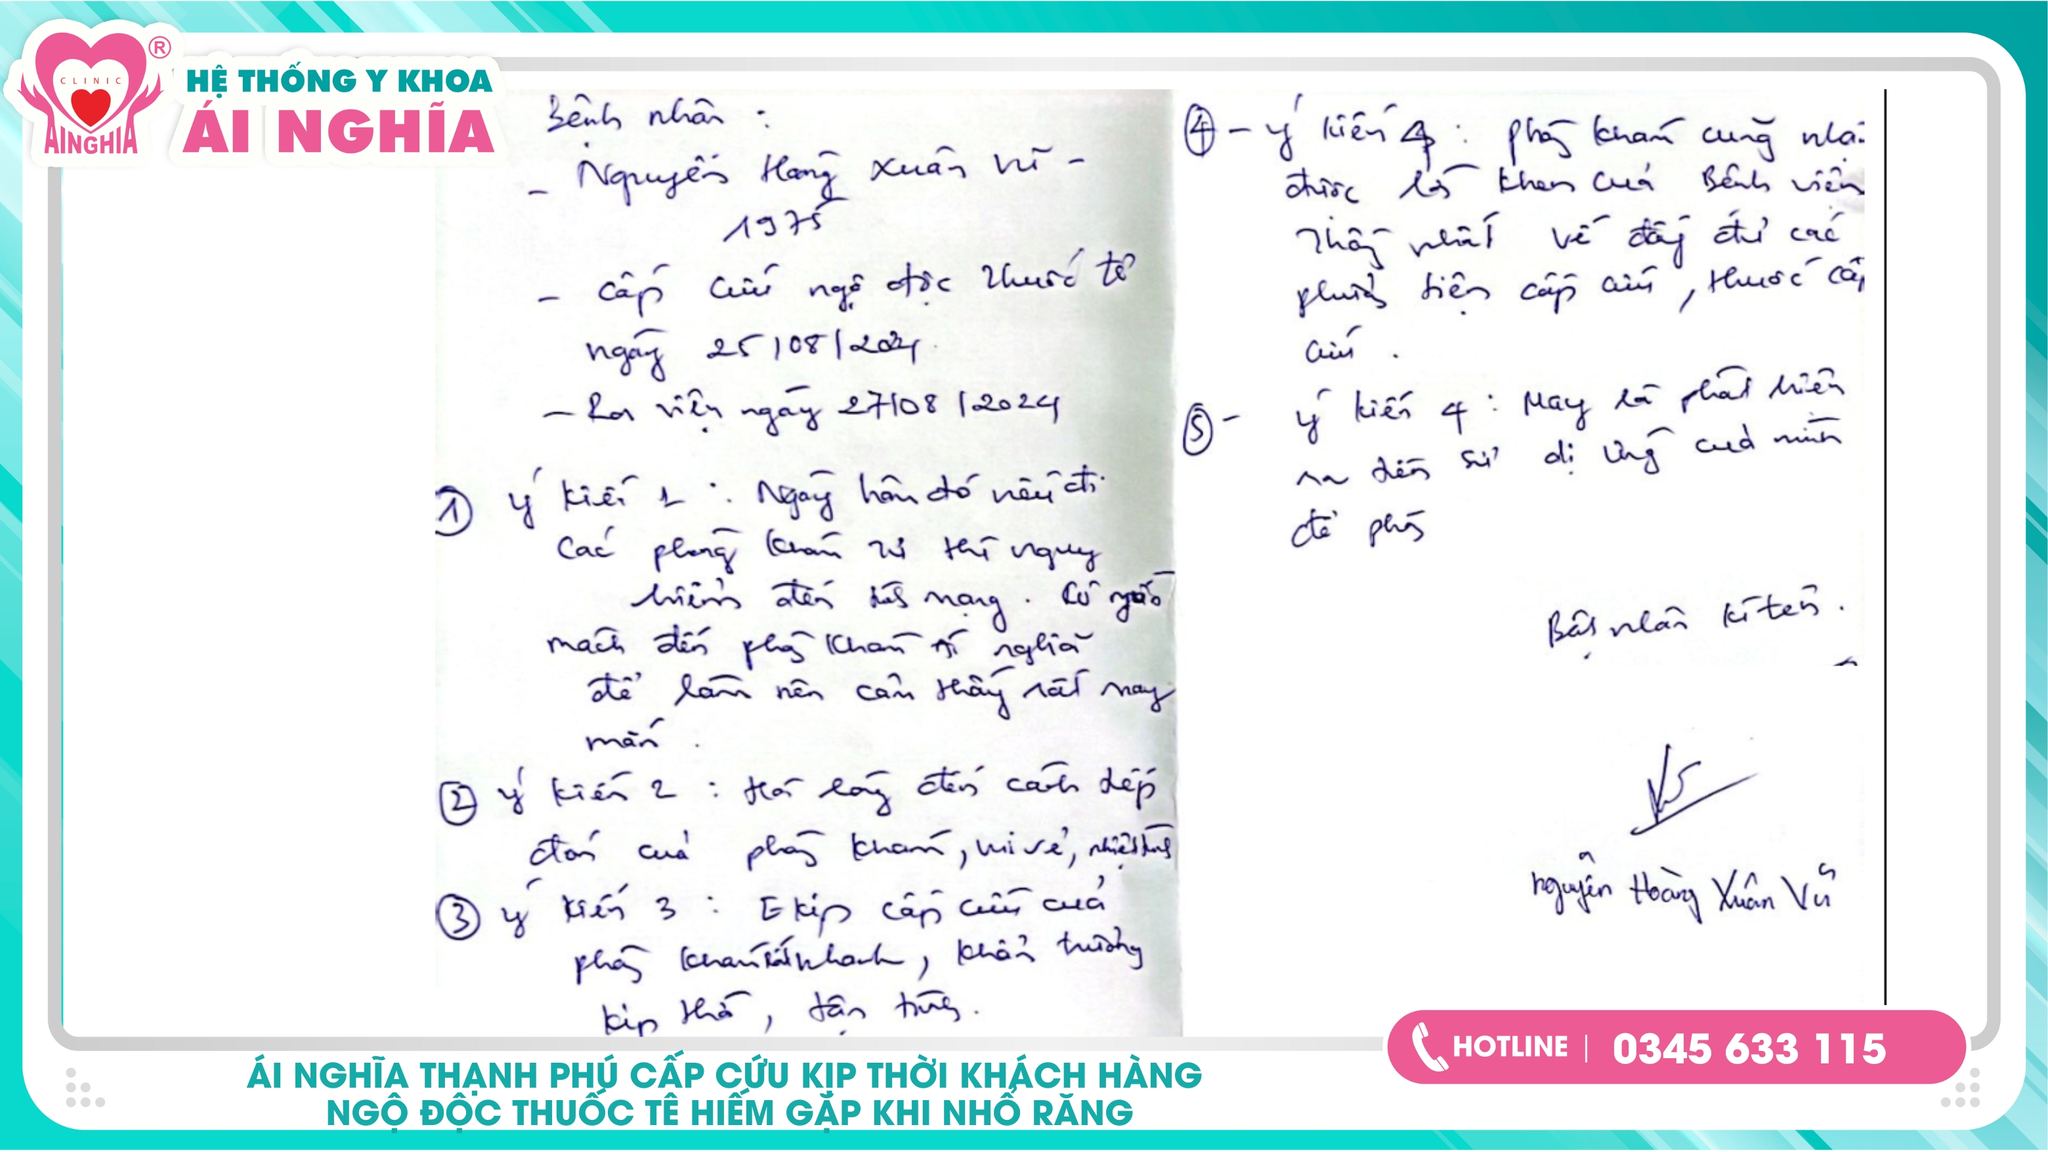 CLINIC
AINGHIA
®
HỆ THỐNG Y KHOA
ÁI NGHĨA
Bệnh nhân :
- Nguyễn Hoàng Xuân Vũ -
1975
- Cấp cứu ngộ độc thuốc tê
ngày 25/08/2024.
- Ra viện ngày 27/08/2024
① Ý kiến 1 : Ngày hôm đó nếu đi
các phòng khám thì nguy
hiểm đến tính mạng.
mách đến phòng khám Ái nghĩa
để làm nên cảm thấy rất may
mắn.
② Ý kiến 2 : Hài lòng đến cách tiếp
đón của phòng khám, vui vẻ, nhiệt tình
③ Ý kiến 3 : Ekip cấp cứu của
phòng khám rất nhanh, khẩn trương
kịp thời, tận tình.
④ - Ý kiến 4 : phòng khám cũng nhận
được lời khen của Bệnh viện
Thống nhất về đầy đủ các
phương tiện cấp cứu, thuốc cấp
cứu.
⑤ - Ý kiến 4 : May là phát hiện
ra đến sự dị ứng của mình
để phòng
Bệnh nhân kí tên.
Nguyễn Hoàng Xuân Vũ
HOTLINE | 0345 633 115
ÁI NGHĨA THẠNH PHÚ CẤP CỨU KỊP THỜI KHÁCH HÀNG
NGỘ ĐỘC THUỐC TÊ HIẾM GẶP KHI NHỔ RĂNG